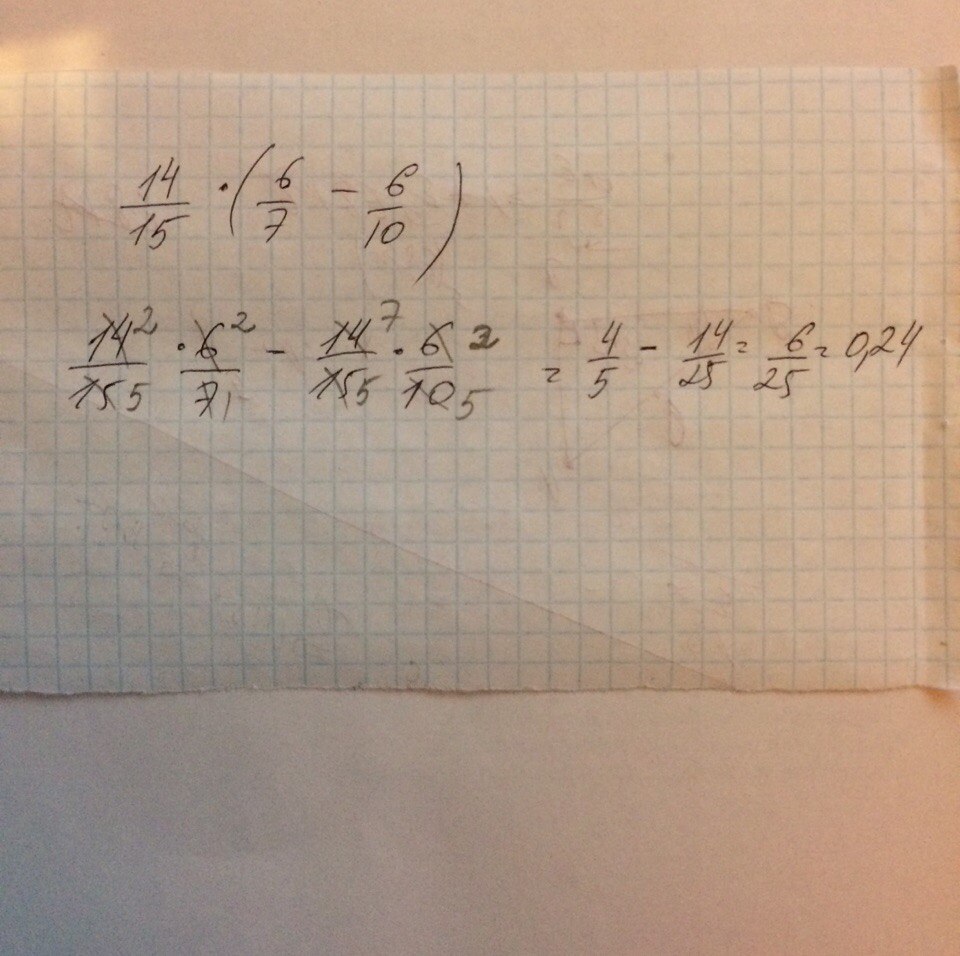 14/15 · (6/7 − 6/10)
14²/15 5 · 6²/7 1 − 14⁷/15 5 · 6 2/10 5 = 4/5 − 14/25 = 6/25 = 0,24